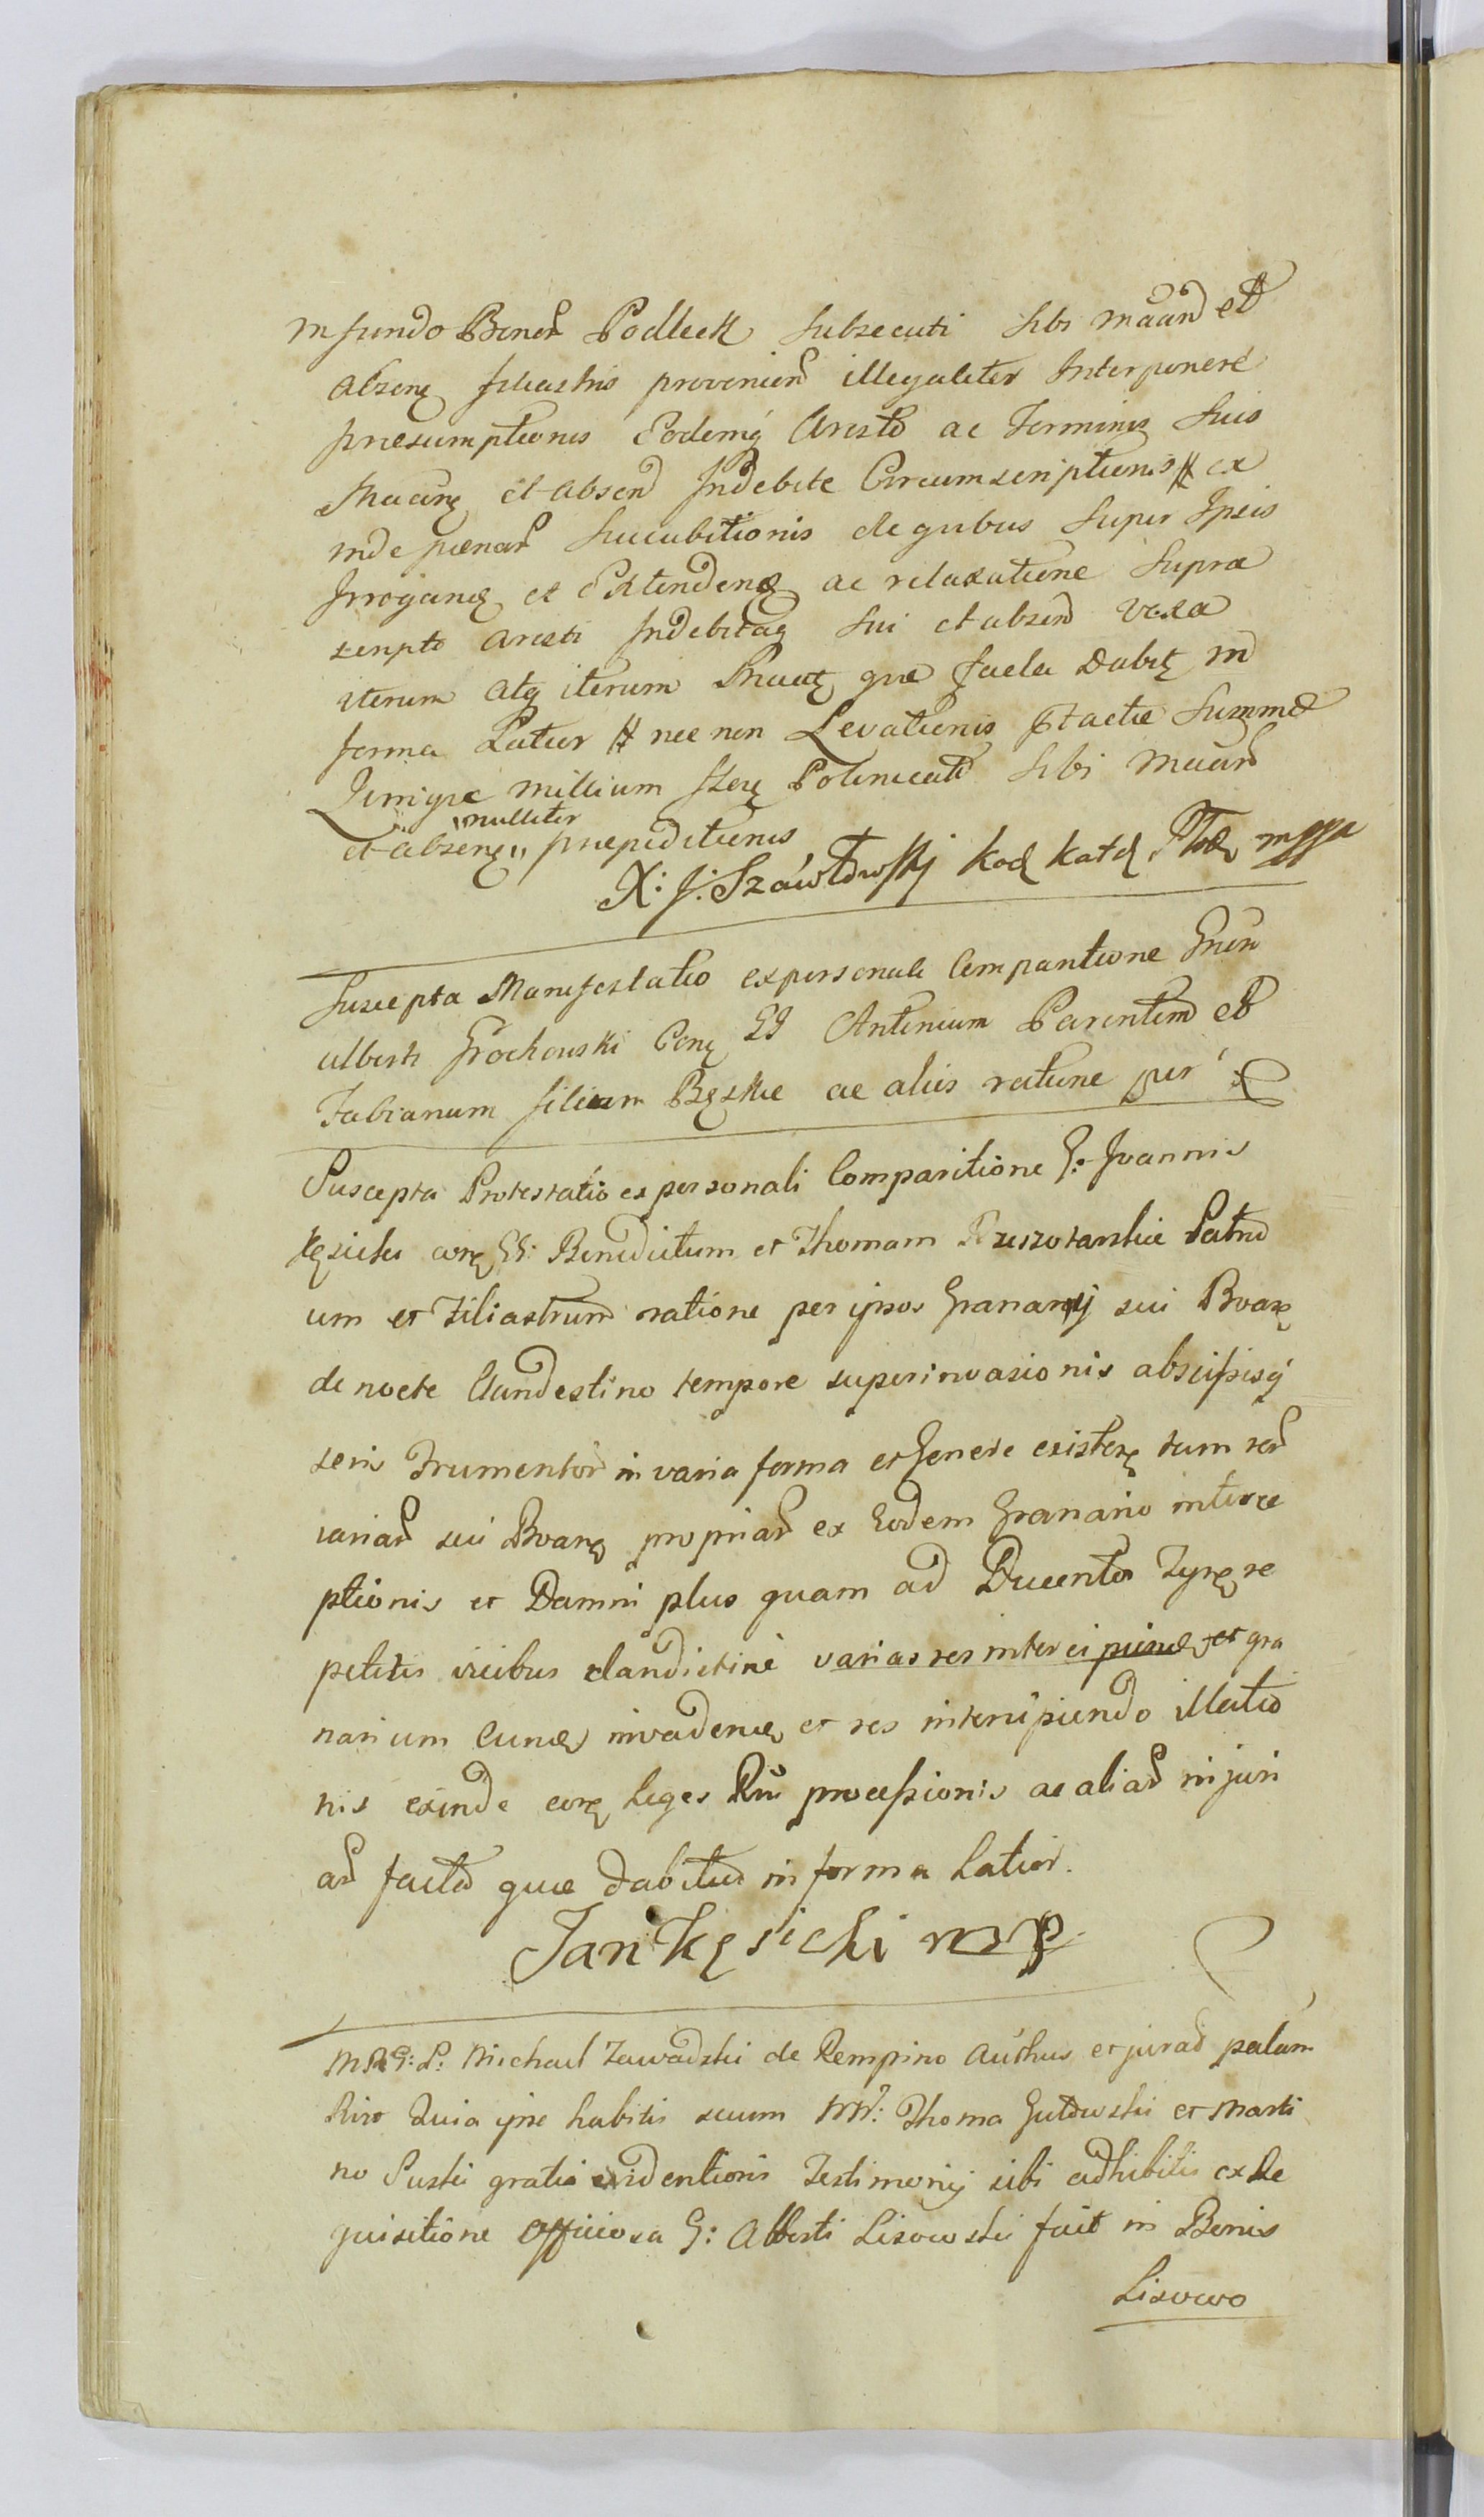 in fundo Bonor Podleck subsecuti sibi maand et
absenę filiastris provenien illegaliter Interponere
praesumptionis Eodemq Aresto ac Terminis suis
et absend Indebite Circumscriptionis # ex
inde paenar Sucubitionis de quibus super Ipsis
Irroganę et Extendenę ac relaxatione Supra
scripto aresti Indebitaq sui et absend vexa
iterum atq iterum quae facta dabitę in
forma Latior # nec non Levationis Summae
millium sibi
et absenę "nulliter" praepeditionis
X: J: Száwłowskj Kod Katd mppa
Suscepta Manifestatio ex personali Compantione Gnen
Alberti Grochowski Conę GG Antonium Parentem et
Fabianum filium Bęskie ac aliis ratione per
Suscepta Protestatio ex personali Comparitione G: Joannis
Kęsicki corę GG: Benedictum et Thomam Rzeszotarskie Patru
um et Filiastrum ratione per ipsos Granarij sui Proaę
de nocte Clandestino tempore superinvasionis abscissisq
seris Frumentor in varia forma et Genere existenę tum rer
variar sui Proanę propriar ex Eodem Granario interce
ptionis et Damni plus quam ad Ducentos re
petitis vicibus clandictinè varias res intercipienę et gra
narium Eunę invadenę et res intercipiendo illatio
nis exinde corę Leges Rni processionis ac aliar injuri
ar factar quae dabitur in forma Latior.
Jan Kęsicki mp
M R G: P: Michael Zawadzki de Rempino Authus et jurad palam
Quia ipse habitis secum NN: Thoma Gutowski et Marti
no Suski gratia evidentioris Testimonij sibi adhibitis ex Re
quisitione officiosa G: Alberti Lisowski fuit in Bonis
Lisowo